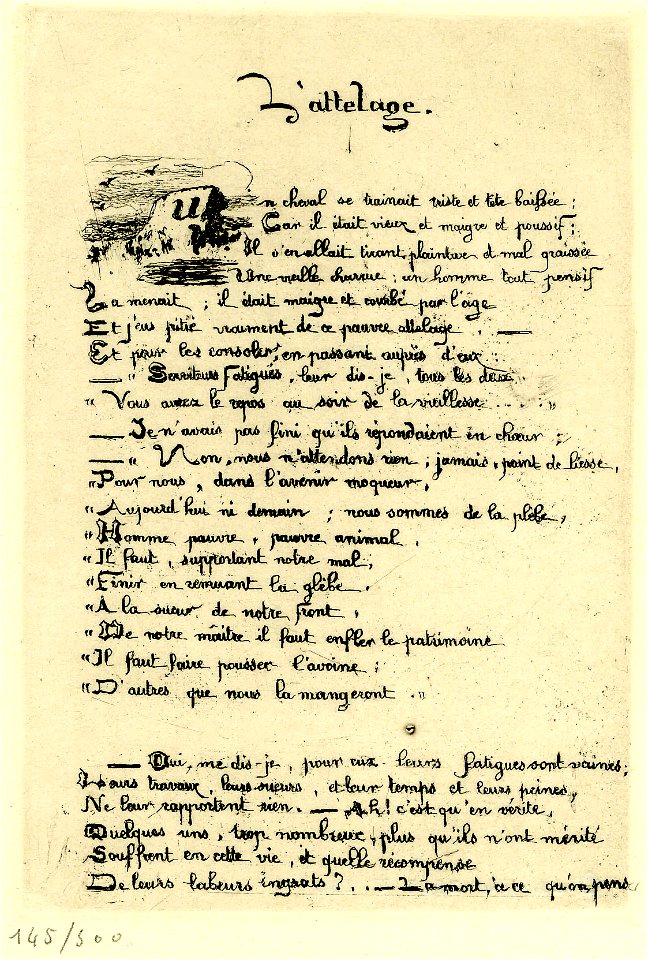 L'attelage.
Un cheval se trainait triste et tête baissée ;
Car il était vieux et maigre et poussif ;
Il s'en allait tirant, plaintive et mal graissée
Une vieille charrue ; un homme tout pensif
La menait ; il était maigre et courbé par l'âge
Et j'eus pitié vraiment de ce pauvre attelage . . —
Et pour les consoler, en passant auprès d'eux :
— " Serviteurs fatigués, leur dis-je, tous les deux
" Vous aurez le repos au soir de la vieillesse . . . . "
— Je n'avais pas fini qu'ils répondaient en chœur :
— " Non, nous n'attendons rien ; jamais, point de liesse,
" Pour nous, dans l'avenir moqueur,
" Aujourd'hui ni demain ; nous sommes de la plèbe,
" Homme pauvre, pauvre animal,
" Il faut, supportant notre mal,
" Finir en remuant la glèbe.
" A la sueur de notre front,
" De notre maître il faut enfler le patrimoine
" Il faut faire pousser l'avoine ;
" D'autres que nous la mangeront . "
— Oui, me dis-je, pour eux leurs fatigues sont vaines ;
Leurs travaux, leurs sueurs, et leur temps et leurs peines,
Ne leur rapportent rien. — Ah ! c'est qu'en vérité,
Quelques uns, trop nombreux, plus qu'ils n'ont mérité
Souffrent en cette vie, et quelle récompense
De leurs labeurs ingrats ? . . — La mort, à ce qu'on pens
145/500